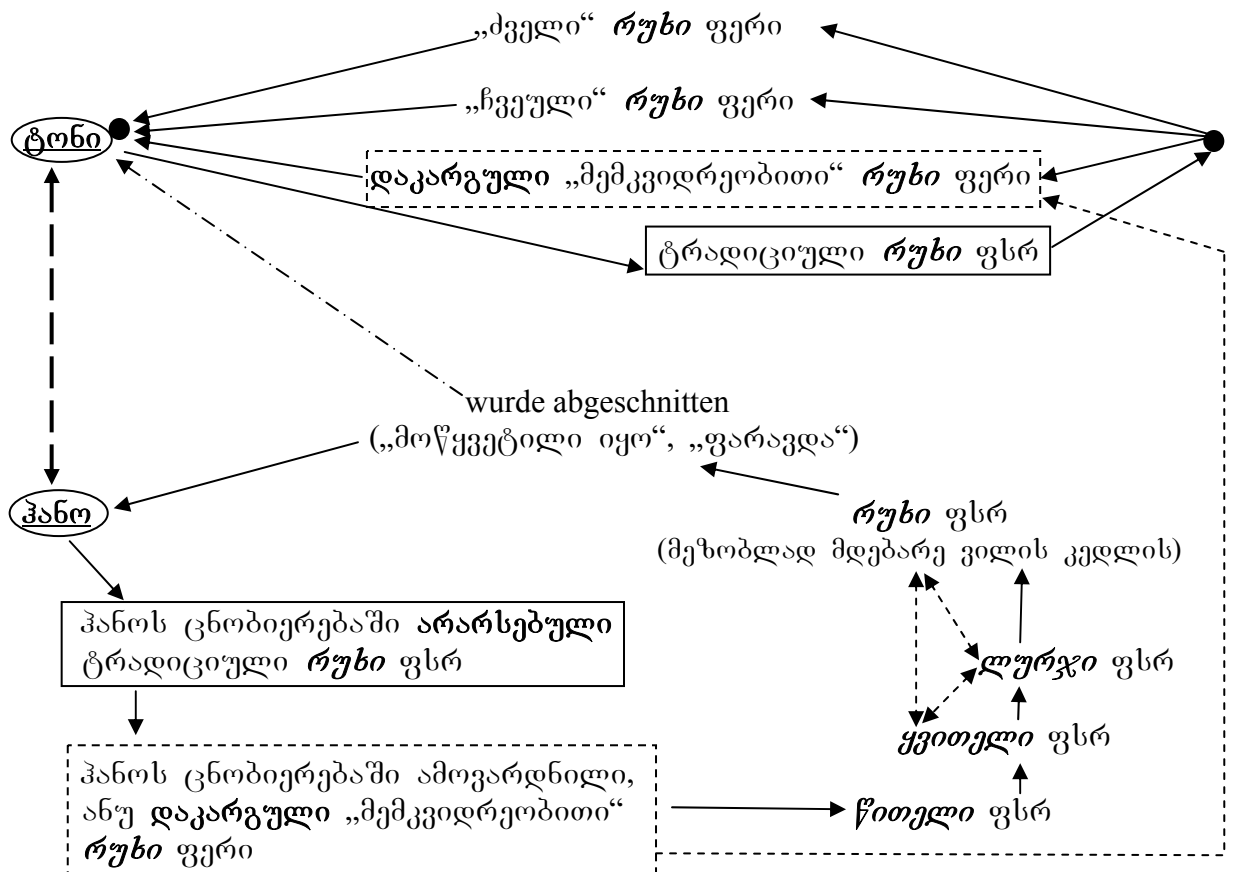 „ძველი“ რუხი ფერი
„ჩვეული“ რუხი ფერი
ტონი
დაკარგული „მემკვიდრეობითი“ რუხი ფერი
ტრადიციული რუხი ფსრ
wurde abgeschnitten
(„მოწყვეტილი იყო“, „ფარავდა“)
ჰანო
რუხი ფსრ
(მეზობლად მდებარე ვილის კედლის)
ჰანოს ცნობიერებაში არარსებული
ტრადიციული რუხი ფსრ
ლურჯი ფსრ
ყვითელი ფსრ
ჰანოს ცნობიერებაში ამოვარდნილი,
ანუ დაკარგული „მემკვიდრეობითი“
რუხი ფერი
წითელი ფსრ